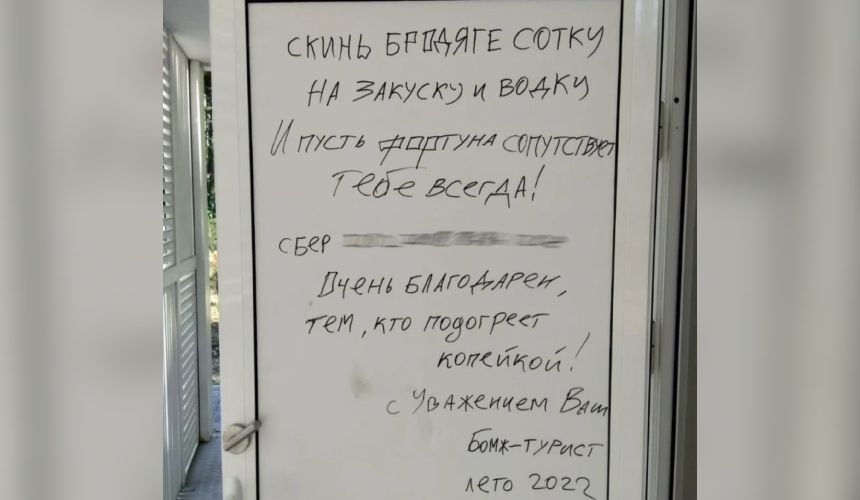 СКИНЬ БРОДЯГЕ СОТКУ
НА ЗАКУСКУ И ВОДКУ
И ПУСТЬ ФОРТУНА СОПУТСТВУЕТ
ТЕБЕ ВСЕГДА!
СБЕР
ОЧЕНЬ БЛАГОДАРЕН,
ТЕМ, КТО ПОДОГРЕЕТ
КОПЕЙКОЙ!
С УВАЖЕНИЕМ ВАШ
БОМЖ-ТУРИСТ
ЛЕТО 2022